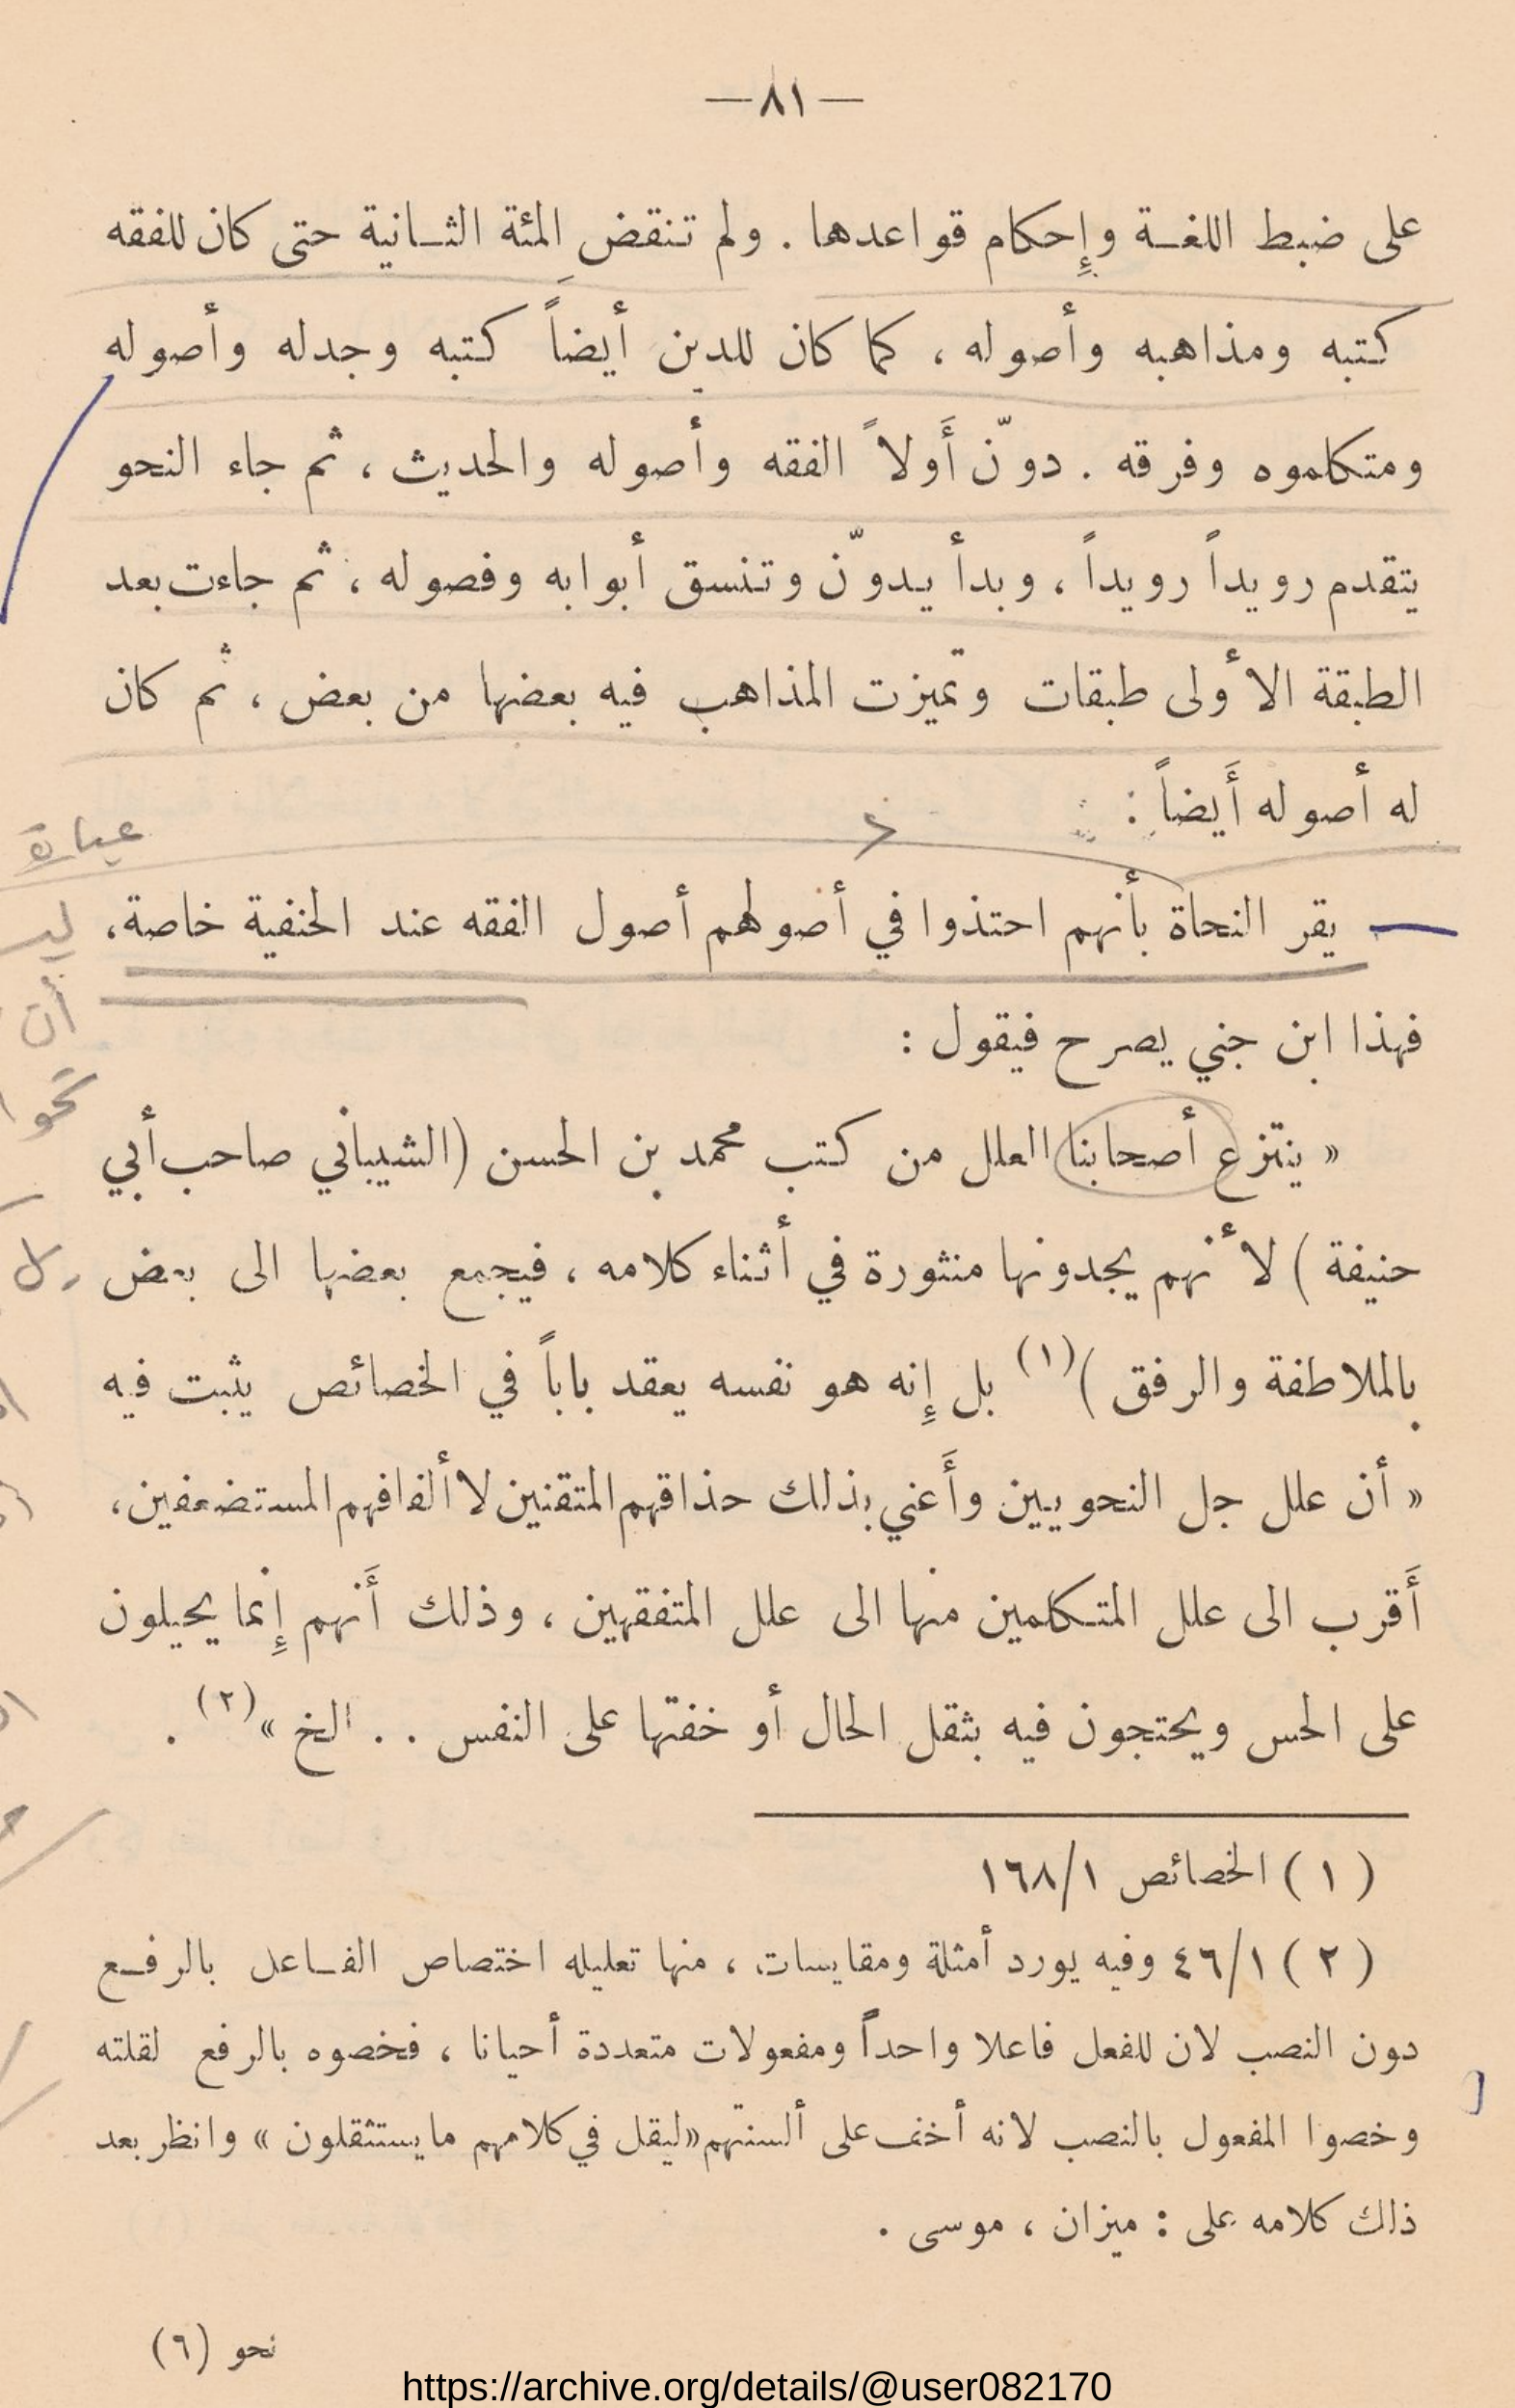 —٨١—
على ضبط اللغــة وإِحكام قواعدها . ولم تنقض المئة الثــانية حتى كان للفقه
كتبه ومذاهبه وأصوله ، كما كان للدين أيضاً كتبه وجدله وأصوله
ومتكلموه وفرقه . دوّن أَولاً الفقه وأصوله والحديث ، ثم جاء النحو
يتقدم رويداً رويداً ، وبدأ يدوّن وتنسق أبوابه وفصوله ، ثم جاءت بعد
الطبقة الأولى طبقات وتميزت المذاهب فيه بعضها من بعض ، ثم كان
له أصوله أَيضاً :
عبارة
يقر النحاة بأنهم احتذوا في أصولهم أصول الفقه عند الحنفية خاصة،
أن
فهذا ابن جني يصرح فيقول :
« ينتزع أصحابنا العلل من كتب محمد بن الحسن (الشيباني صاحب أبي
حنيفة ) لأنهم يجدونها منثورة في أثناء كلامه ، فيجمع بعضها الى بعض
بالملاطفة والرفق )(١) بل إِنه هو نفسه يعقد باباً في الخصائص يثبت فيه
« أن علل جل النحويين وأَعني بذلك حذاقهم المتقنين لا ألفافهم المستضعفين،
أَقرب الى علل المتـكلمين منها الى علل المتفقهين ، وذلك أَنهم إِنما يحيلون
على الحس ويحتجون فيه بثقل الحال أو خفتها على النفس . . الخ »(٢) .
( ١ ) الخصائص ١٦٨/١
( ٢ ) ٤٦/١ وفيه يورد أمثلة ومقايسات ، منها تعليله اختصاص الفــاعل بالرفــع
دون النصب لان للفعل فاعلا واحداً ومفعولات متعددة أحيانا ، فخصوه بالرفع لقلته
وخصوا المفعول بالنصب لانه أخف على ألسنتهم «ليقل في كلامهم ما يستثقلون » وانظر بعد
ذلك كلامه على : ميزان ، موسى .
نحو (٦)
https://archive.org/details/@user082170